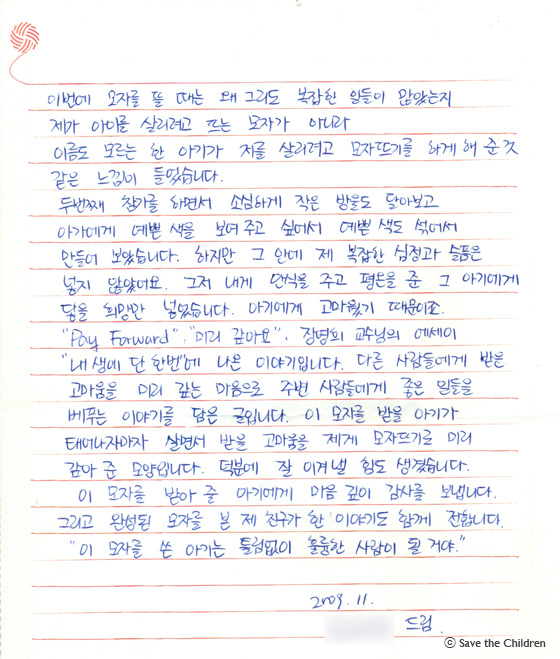 이번에 모자를 뜰 때는 왜 그리도 복잡한 일들이 많았는지
제가 아이를 살리려고 뜨는 모자가 아니라
이름도 모르는 한 아기가 저를 살리려고 모자뜨기를 하게 해 준 것
같은 느낌이 들었습니다.
두번째 참가를 하면서 소심하게 작은 방울도 달아보고
아가에게 예쁜 색을 보여 주고 싶어서 예쁜 색도 섞어서
만들어 보았습니다. 하지만 그 안에 제 복잡한 심정과 슬픔은
넣지 않았어요. 그저 내게 안식을 주고 평온을 준 그 아기에게
담을 희망만 넣었습니다. 아기에게 고마웠기 때문이죠.
"Pay Forward", "미리 갚아요", 장영희 교수님의 에세이
"내 생애 단 한번"에 나온 이야기입니다. 다른 사람들에게 받은
고마움을 미리 갚는 마음으로 주변 사람들에게 좋은 일들을
베푸는 이야기를 담은 글입니다. 이 모자를 받을 아기가
태어나자마자 살면서 받을 고마움을 제게 모자뜨기로 미리
갚아 준 모양입니다. 덕분에 잘 이겨낼 힘도 생겼습니다.
이 모자를 받아 줄 아기에게 마음 깊이 감사를 보냅니다.
그리고 완성된 모자를 본 제 친구가 한 이야기도 함께 전합니다.
"이 모자를 쓴 아기는 틀림없이 훌륭한 사람이 될 거야."
2009. 11.
드림.
ⓒ Save the Children